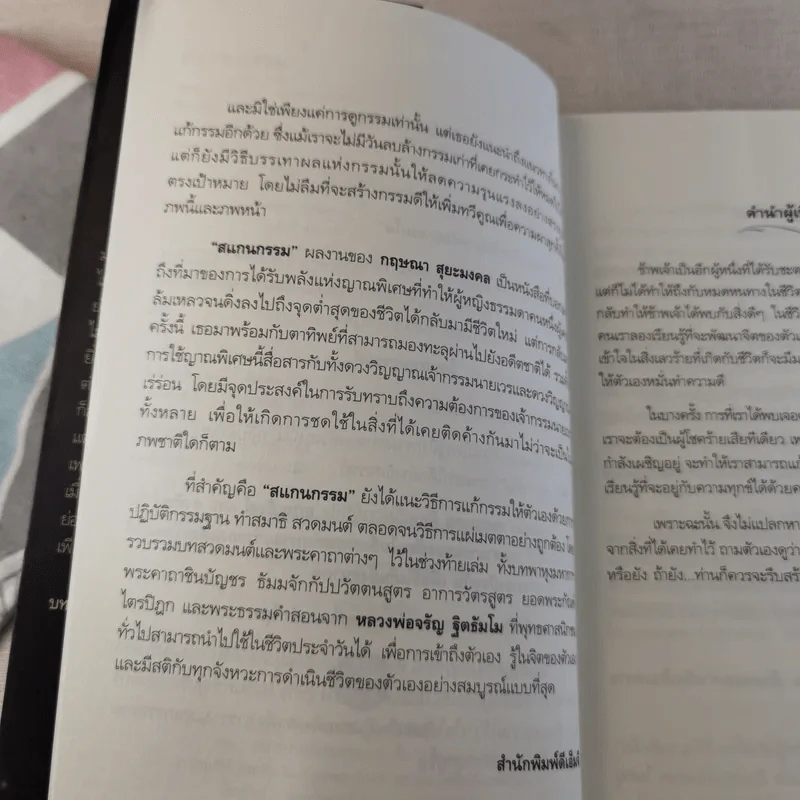 และมิใช่เพียงแค่การดูกรรมเท่านั้น แต่เธอยังแนะนำถึงแนวทาง
แก้กรรมอีกด้วย ซึ่งแม้เราจะไม่มีวันลบล้างกรรมเก่าที่เคยกระทำไว้ให้หมดไป
แต่ก็ยังมีวิธีบรรเทาผลแห่งกรรมนั้นให้ลดความรุนแรงลงอย่าง
ตรงเป้าหมาย โดยไม่ลืมที่จะสร้างกรรมดีให้เพิ่มทวีคูณเพื่อความผาสุก
ภพนี้และภพหน้า
“สแกนกรรม” ผลงานของ กฤษณา สุยะมงคล เป็นหนังสือที่บอก
ถึงที่มาของการได้รับพลังแห่งญาณพิเศษที่ทำให้ผู้หญิงธรรมดาคนหนึ่ง
ล้มเหลวจนดิ่งลงไปถึงจุดต่ำสุดของชีวิตได้กลับมามีชีวิตใหม่ แต่การกลับมา
ครั้งนี้ เธอมาพร้อมกับตาทิพย์ที่สามารถมองทะลุผ่านไปยังอดีตชาติได้ รวมถึง
การใช้ญาณพิเศษนี้สื่อสารกับทั้งดวงวิญญาณเจ้ากรรมนายเวรและดวงวิญญาณ
เร่ร่อน โดยมีจุดประสงค์ในการรับทราบถึงความต้องการของเจ้ากรรมนายเวร
ทั้งหลาย เพื่อให้เกิดการชดใช้ในสิ่งที่ได้เคยติดค้างกันมาไม่ว่าจะเป็น
ภพชาติใดก็ตาม
ที่สำคัญคือ “สแกนกรรม” ยังได้แนะวิธีการแก้กรรมให้ตัวเองด้วยการ
ปฏิบัติกรรมฐาน ทำสมาธิ สวดมนต์ ตลอดจนวิธีการแผ่เมตตาอย่างถูกต้อง โดย
รวบรวมบทสวดมนต์และพระคาถาต่างๆ ไว้ในช่วงท้ายเล่ม ทั้งบทพาหุงมหากา
พระคาถาชินบัญชร ธัมมจักกัปปวัตตนสูตร อาการวัตรสูตร ยอดพระกัณฑ์
ไตรปิฎก และพระธรรมคำสอนจาก หลวงพ่อจรัญ ฐิตธัมโม ที่พุทธศาสนิกชน
ทั่วไปสามารถนำไปใช้ในชีวิตประจำวันได้ เพื่อการเข้าถึงตัวเอง รู้ในจิตของตัวเอง
และมีสติกับทุกจังหวะการดำเนินชีวิตของตัวเองอย่างสมบูรณ์แบบที่สุด
สำนักพิมพ์ดีเอ็มจี
คำนำผู้เขี
ข้าพเจ้าเป็นอีกผู้หนึ่งที่ได้รับชะต
แต่ก็ไม่ได้ทำให้ถึงกับหมดหนทางในชีวิต
กลับทำให้ข้าพเจ้าได้พบกับสิ่งดีๆ ในชีวิ
คนเราลองเรียนรู้ที่จะพัฒนาจิตของตัวเ
เข้าใจในสิ่งเลวร้ายที่เกิดกับชีวิตก็จะมีม
ให้ตัวเองหมั่นทำความดี
ในบางครั้ง การที่เราได้พบเจออ
เราจะต้องเป็นผู้โชคร้ายเสียทีเดียว เพ
กำลังเผชิญอยู่ จะทำให้เราสามารถแก้
เรียนรู้ที่จะอยู่กับความทุกข์ได้ด้วยค
เพราะฉะนั้น จึงไม่แปลกหา
จากสิ่งที่ได้เคยทำไว้ ถามตัวเองดูว่า
หรือยัง ถ้ายัง...ท่านก็ควรจะรีบสร้